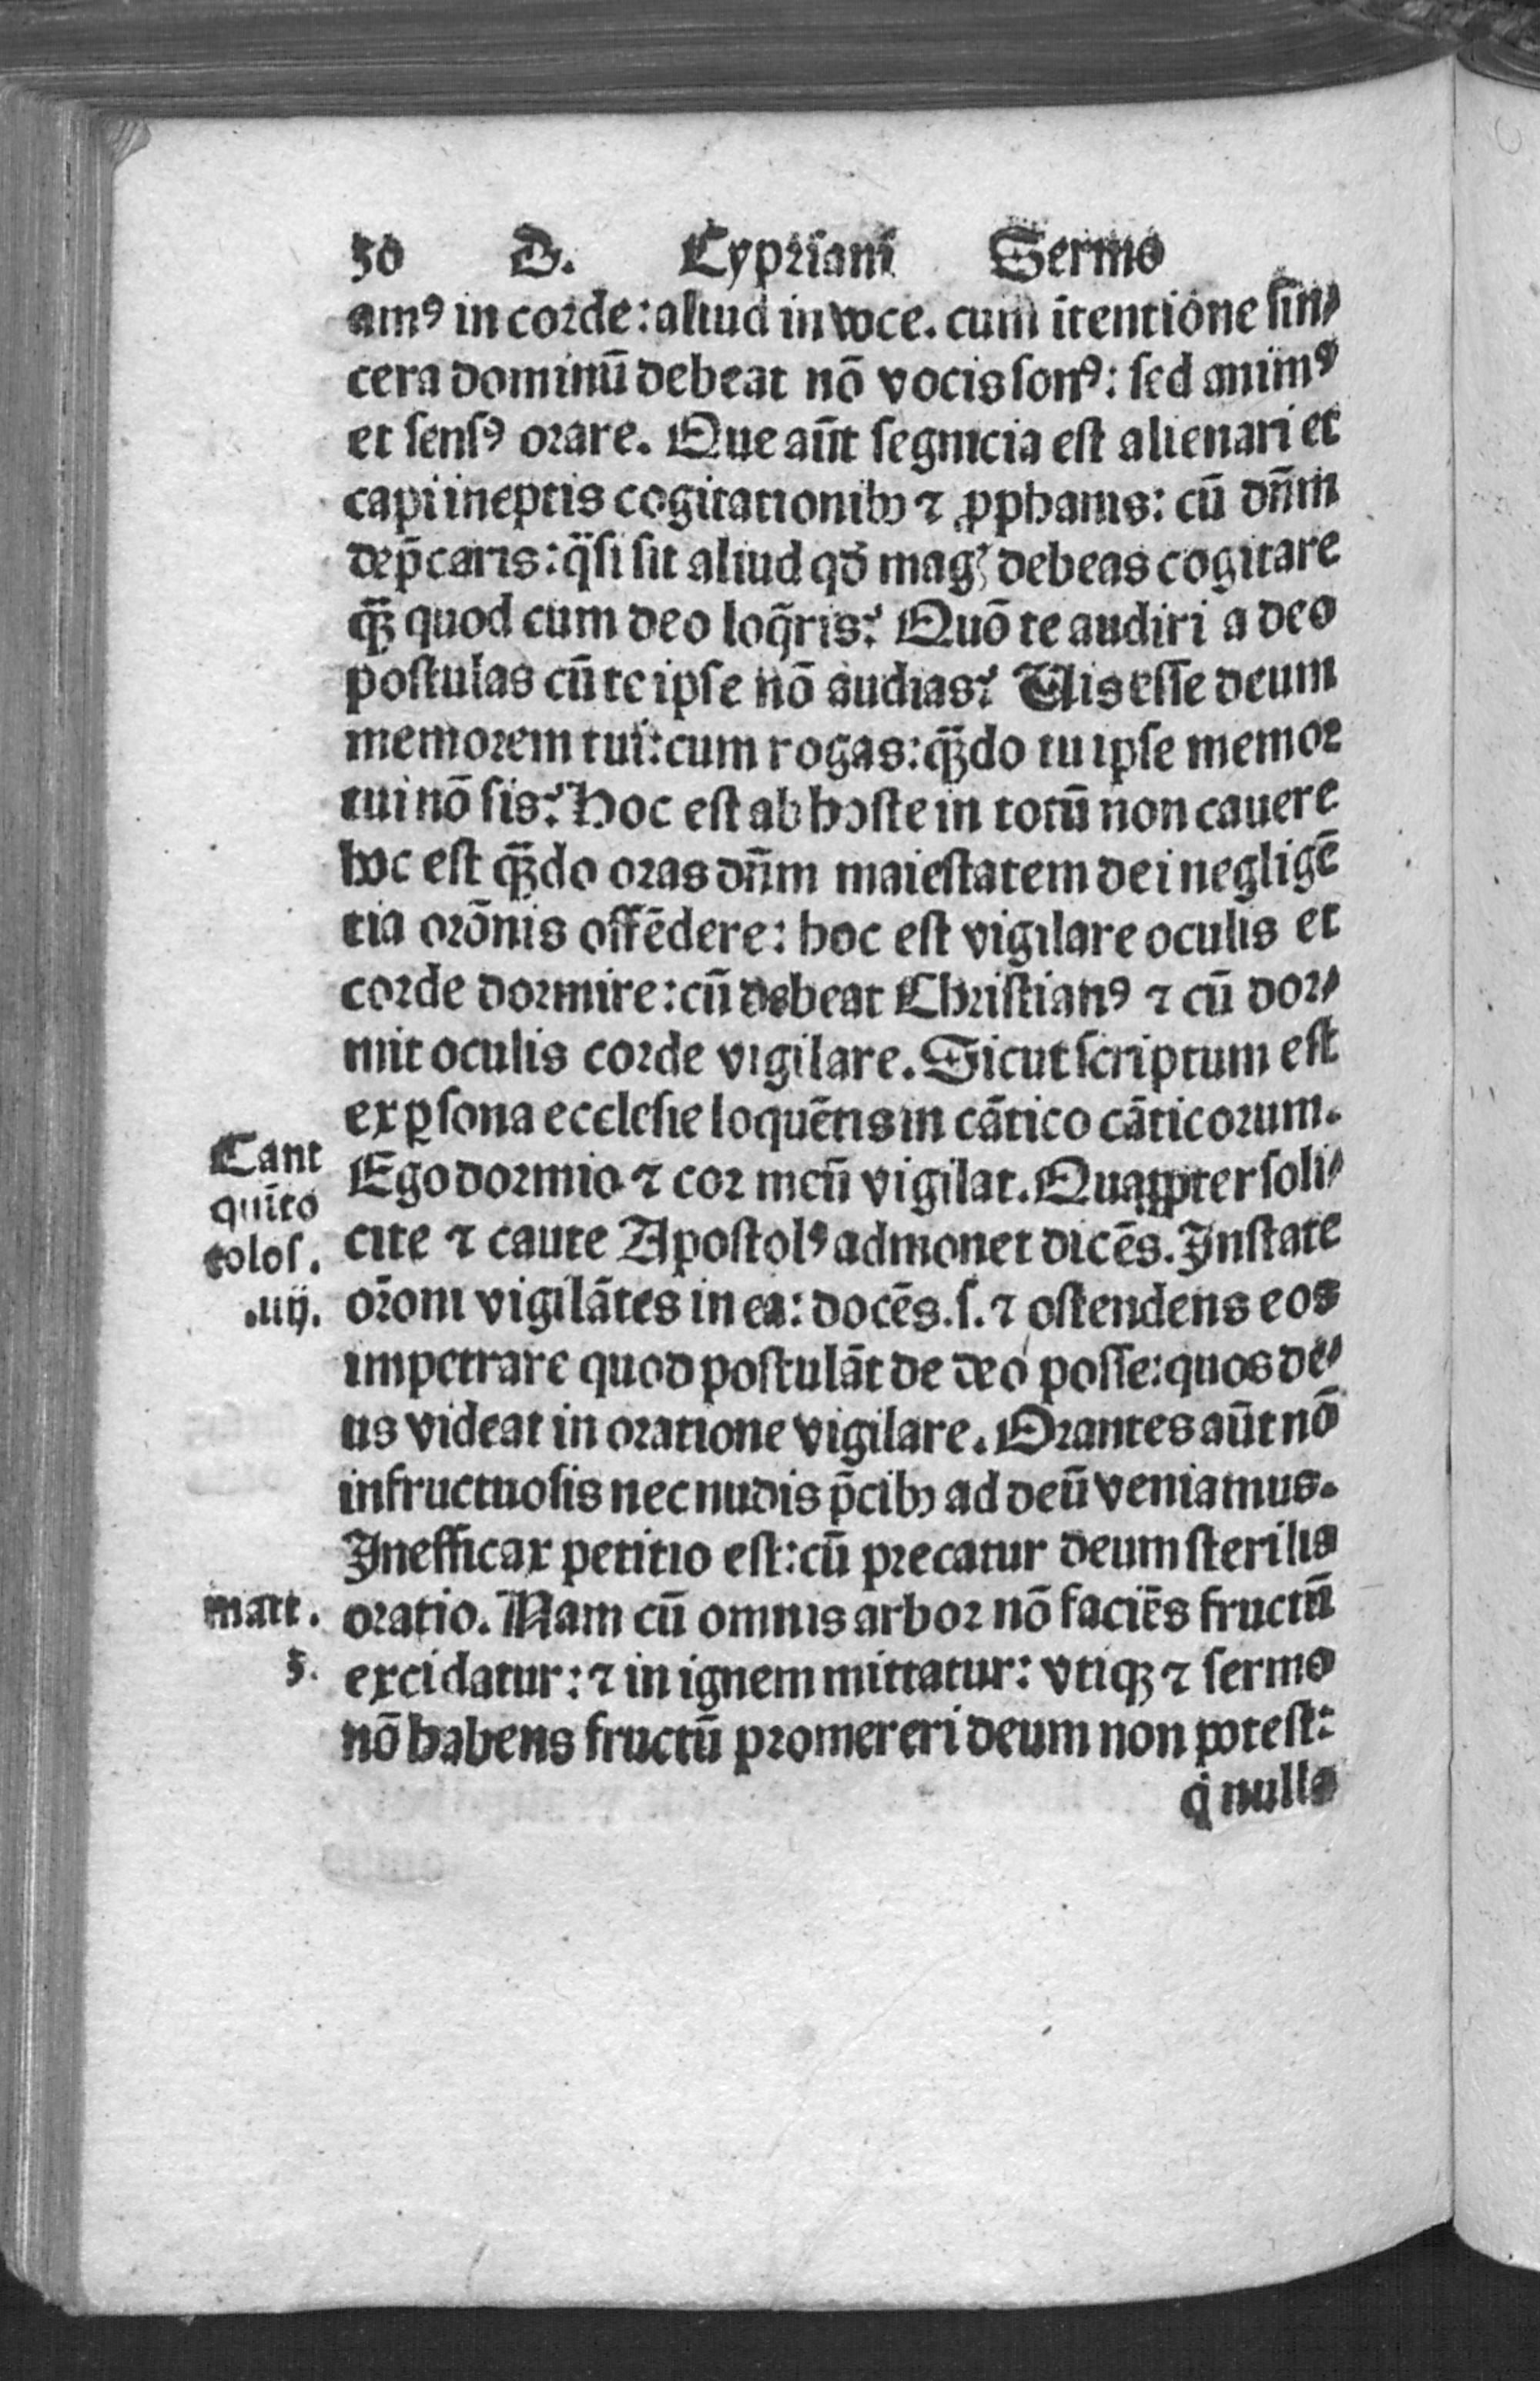 50 D. Cypriani Sermo
amꝰ in corde: aliud in voce. cum ītentione sin⸗
cera dominū debeat nō vocis sonꝰ: sed animꝰ
et sensꝰ orare. Que aūt segnicia est alienari et
capi ineptis cogitationibꝫ ⁊ ꝓphanis: cū dn̄m
dep̄caris: q̈si sit aliud qđ magꝭ debeas cogitare
qꝫ̄ quod cum deo loq̄ris? Quō te audiri a deo
postulas cū te ipse nō audias? Vis esse deum
memorem tui: cum rogas: qꝫ̄do tu ipse memor
tui nō sis? Hoc est ab hoste in totū non cauere
hoc est qꝫ̄do oras dn̄m maiestatem dei negligē
tia orōnis offēdere: hoc est vigilare oculis et
corde dormire: cū debeat Christianꝰ ⁊ cū dor⸗
mit oculis corde vigilare. Sicut scriptum est
ex ꝑsona ecclesie loquētis in cātico cāticorum.
Cant
Ego dormio ⁊ cor meū vigilat. Quaꝓpter soli⸗
quīto
cite ⁊ caute Apostolꝰ admonet dicēs. Instate
colos.
or̄oni vigilātes in ea: docēs .s. ⁊ ostendens eos
.iiij.
impetrare quod postulāt de deo posse: quos de⸗
us videat in oratione vigilare. Orantes aūt nō
infructuosis nec nudis p̄cibꝫ ad deū veniamus.
Inefficax petitio est: cū precatur deum sterilis
matt.
oratio. Nam cū omnis arbor nō faciēs fructū
3.
excidatur: ⁊ in ignem mittatur: vtiqꝫ ⁊ sermo
nō habens fructū promereri deum non potest:
q̇ nulla